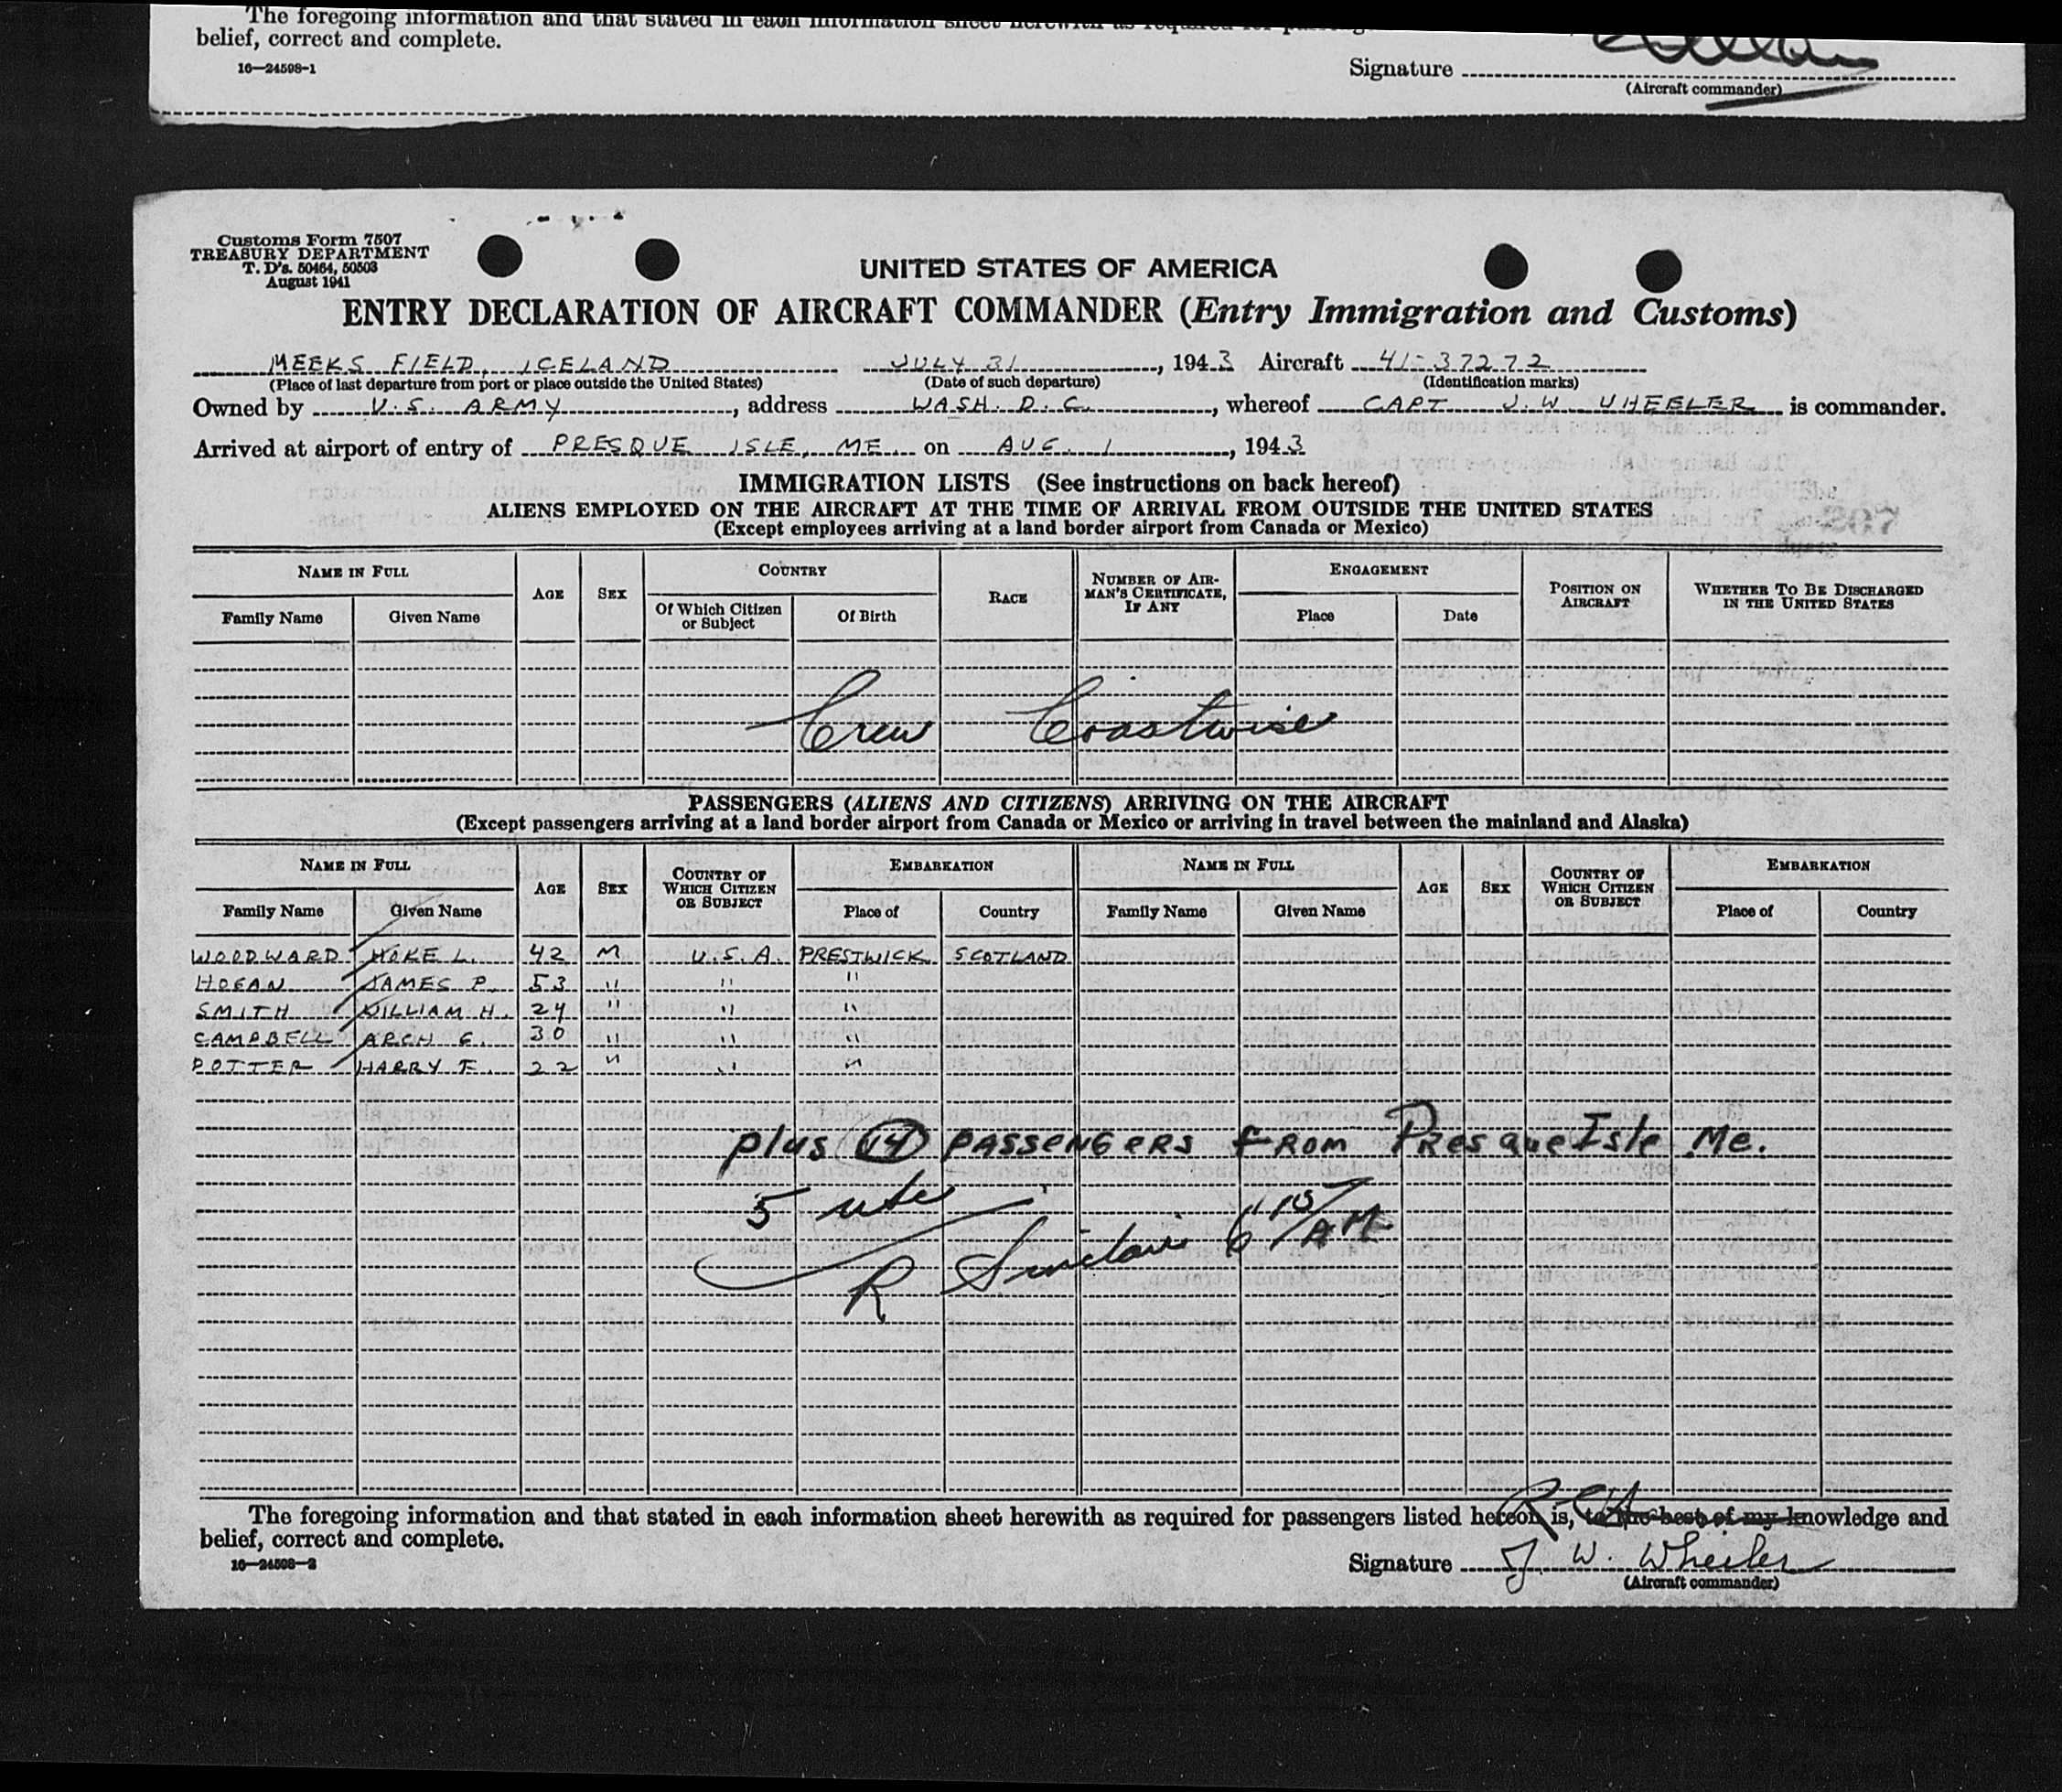 The foregoing information and that stated in each information sheet herewith as required for
belief, correct and complete.
16—24598-1
Signature
(Aircraft commander)
Customs Form 7507
TREASURY DEPARTMENT
T. D's. 50464, 50503
August 1941
UNITED STATES OF AMERICA
ENTRY DECLARATION OF AIRCRAFT COMMANDER (Entry Immigration and Customs)
MEEKS FIELD, ICELAND JULY 31, 1943 Aircraft 41-37272
(Place of last departure from port or place outside the United States) (Date of such departure) (Identification marks)
Owned by U.S. ARMY, address WASH. D.C., whereof CAPT J.W WHEELER is commander.
Arrived at airport of entry of PRESQUE ISLE, ME on AUG. 1, 1943
IMMIGRATION LISTS (See instructions on back hereof)
ALIENS EMPLOYED ON THE AIRCRAFT AT THE TIME OF ARRIVAL FROM OUTSIDE THE UNITED STATES
(Except employees arriving at a land border airport from Canada or Mexico)
NAME IN FULL AGE SEX COUNTRY RACE NUMBER OF AIRMAN'S CERTIFICATE, IF ANY ENGAGEMENT POSITION ON AIRCRAFT WHETHER TO BE DISCHARGED IN THE UNITED STATES
Family Name Given Name Of Which Citizen or Subject Of Birth Place Date
Crew Coastwise
PASSENGERS (ALIENS AND CITIZENS) ARRIVING ON THE AIRCRAFT
(Except passengers arriving at a land border airport from Canada or Mexico or arriving in travel between the mainland and Alaska)
NAME IN FULL AGE SEX COUNTRY OF WHICH CITIZEN OR SUBJECT EMBARKATION NAME IN FULL AGE SEX COUNTRY OF WHICH CITIZEN OR SUBJECT EMBARKATION
Family Name Given Name Place of Country Family Name Given Name Place of Country
WOODWARD HOKE L. 42 M U.S.A. PRESTWICK SCOTLAND
HOGAN JAMES P. 53 " " "
SMITH WILLIAM H. 24 " " "
CAMPBELL ARCH G. 30 " " "
POTTER HARRY F. 22 " " "
plus 14 PASSENGERS FROM Presque Isle Me.
5
R Sinclair 6 15/AM
The foregoing information and that stated in each information sheet herewith as required for passengers listed hereon is, to the best of my knowledge and
belief, correct and complete.
16—24598-2
Signature J. W. Wheeler
(Aircraft commander)